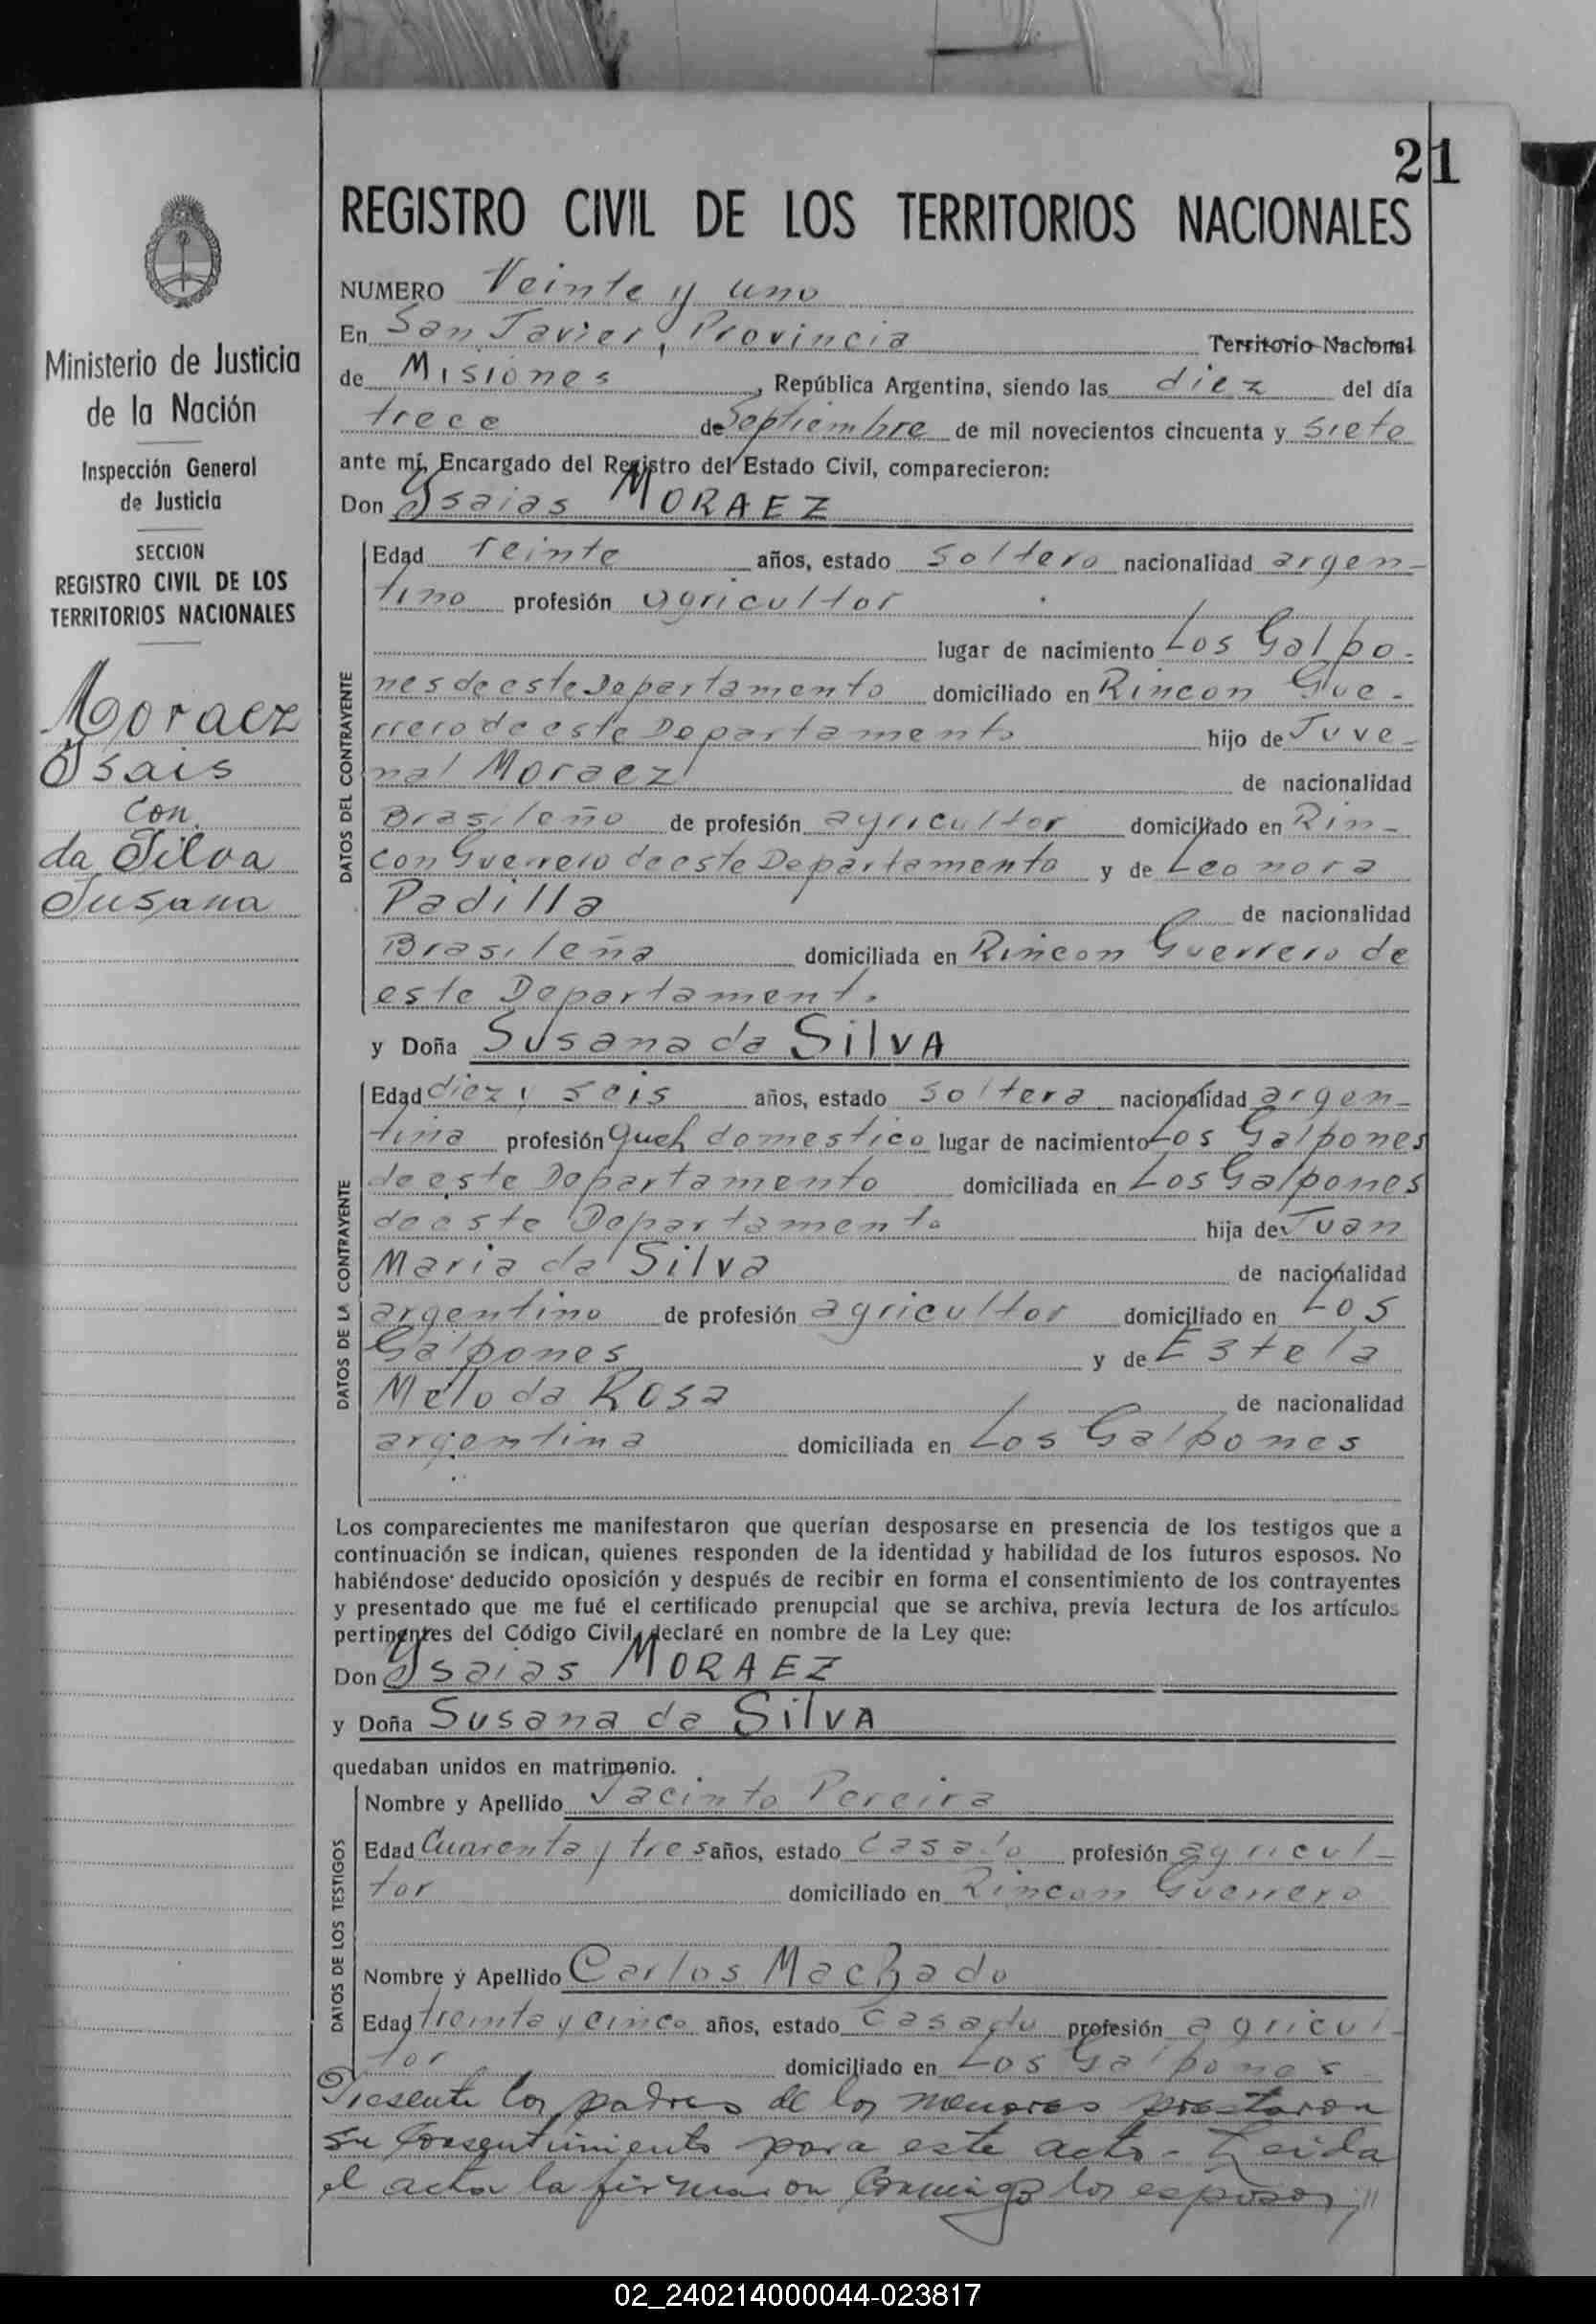 21
REGISTRO CIVIL DE LOS TERRITORIOS NACIONALES
Ministerio de Justicia
de la Nación
Inspección General
de Justicia
SECCION
REGISTRO CIVIL DE LOS
TERRITORIOS NACIONALES
Moraez
Ysais
con
da Silva
Susana
NUMERO Veinte y uno
En San Javier, Provincia Territorio Nacional
de Misiones, República Argentina, siendo las diez del día
trece de Septiembre de mil novecientos cincuenta y siete
ante mí, Encargado del Registro del Estado Civil, comparecieron:
Don Ysaias MORAEZ
DATOS DEL CONTRAYENTE
Edad veinte años, estado soltero nacionalidad argen-
tino profesión agricultor
lugar de nacimiento Los Galpo-
nes de este Departamento domiciliado en Rincon Gue-
rrero de este Departamento hijo de Juve-
nal Moraez de nacionalidad
Brasileño de profesión agricultor domiciliado en Rin-
con Guerrero de este Departamento y de Leonora
Padilla de nacionalidad
Brasileña domiciliada en Rincon Guerrero de
este Departament.
y Doña Susana da SilVA
DATOS DE LA CONTRAYENTE
Edad diez y seis años, estado soltera nacionalidad argen-
tina profesión queh domestico lugar de nacimiento Los Galpones
de este Departamento domiciliada en Los Galpones
de este Departamento hija de Juan
Maria da Silva de nacionalidad
argentino de profesión agricultor domiciliado en Los
Galpones y de Estela
Melo da Rosa de nacionalidad
argentina domiciliada en Los Galpones
Los comparecientes me manifestaron que querían desposarse en presencia de los testigos que a
continuación se indican, quienes responden de la identidad y habilidad de los futuros esposos. No
habiéndose deducido oposición y después de recibir en forma el consentimiento de los contrayentes
y presentado que me fué el certificado prenupcial que se archiva, previa lectura de los artículos
pertinentes del Código Civil, declaré en nombre de la Ley que:
Don Ysaias MORAEZ
y Doña Susana da SilVA
quedaban unidos en matrimonio.
DATOS DE LOS TESTIGOS
Nombre y Apellido Jacinto Pereira
Edad Cuarenta y tres años, estado casado profesión agricul-
tor domiciliado en Rincon Guerrero
Nombre y Apellido Carlos Machado
Edad treinta y cinco años, estado casado profesión agricul-
tor domiciliado en Los Galpones
Presente los padres de los menores prestaron
su Consentimiento para este acto - Leida
el acta la firmaron Conmigo los esposos,"
02_240214000044-023817